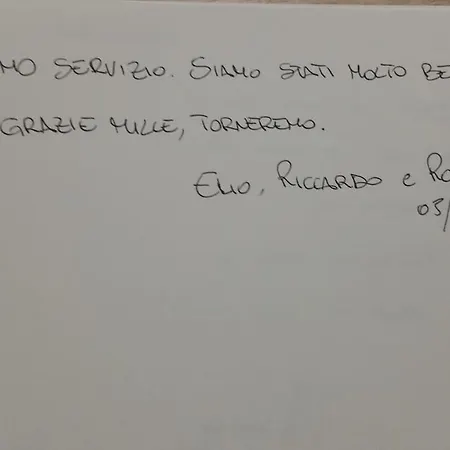 MO SERVIZIO. SIAMO STATI MOLTO BE
GRAZIE MILLE, TORNEREMO.
ELIO, RICCARDO e RO
03/